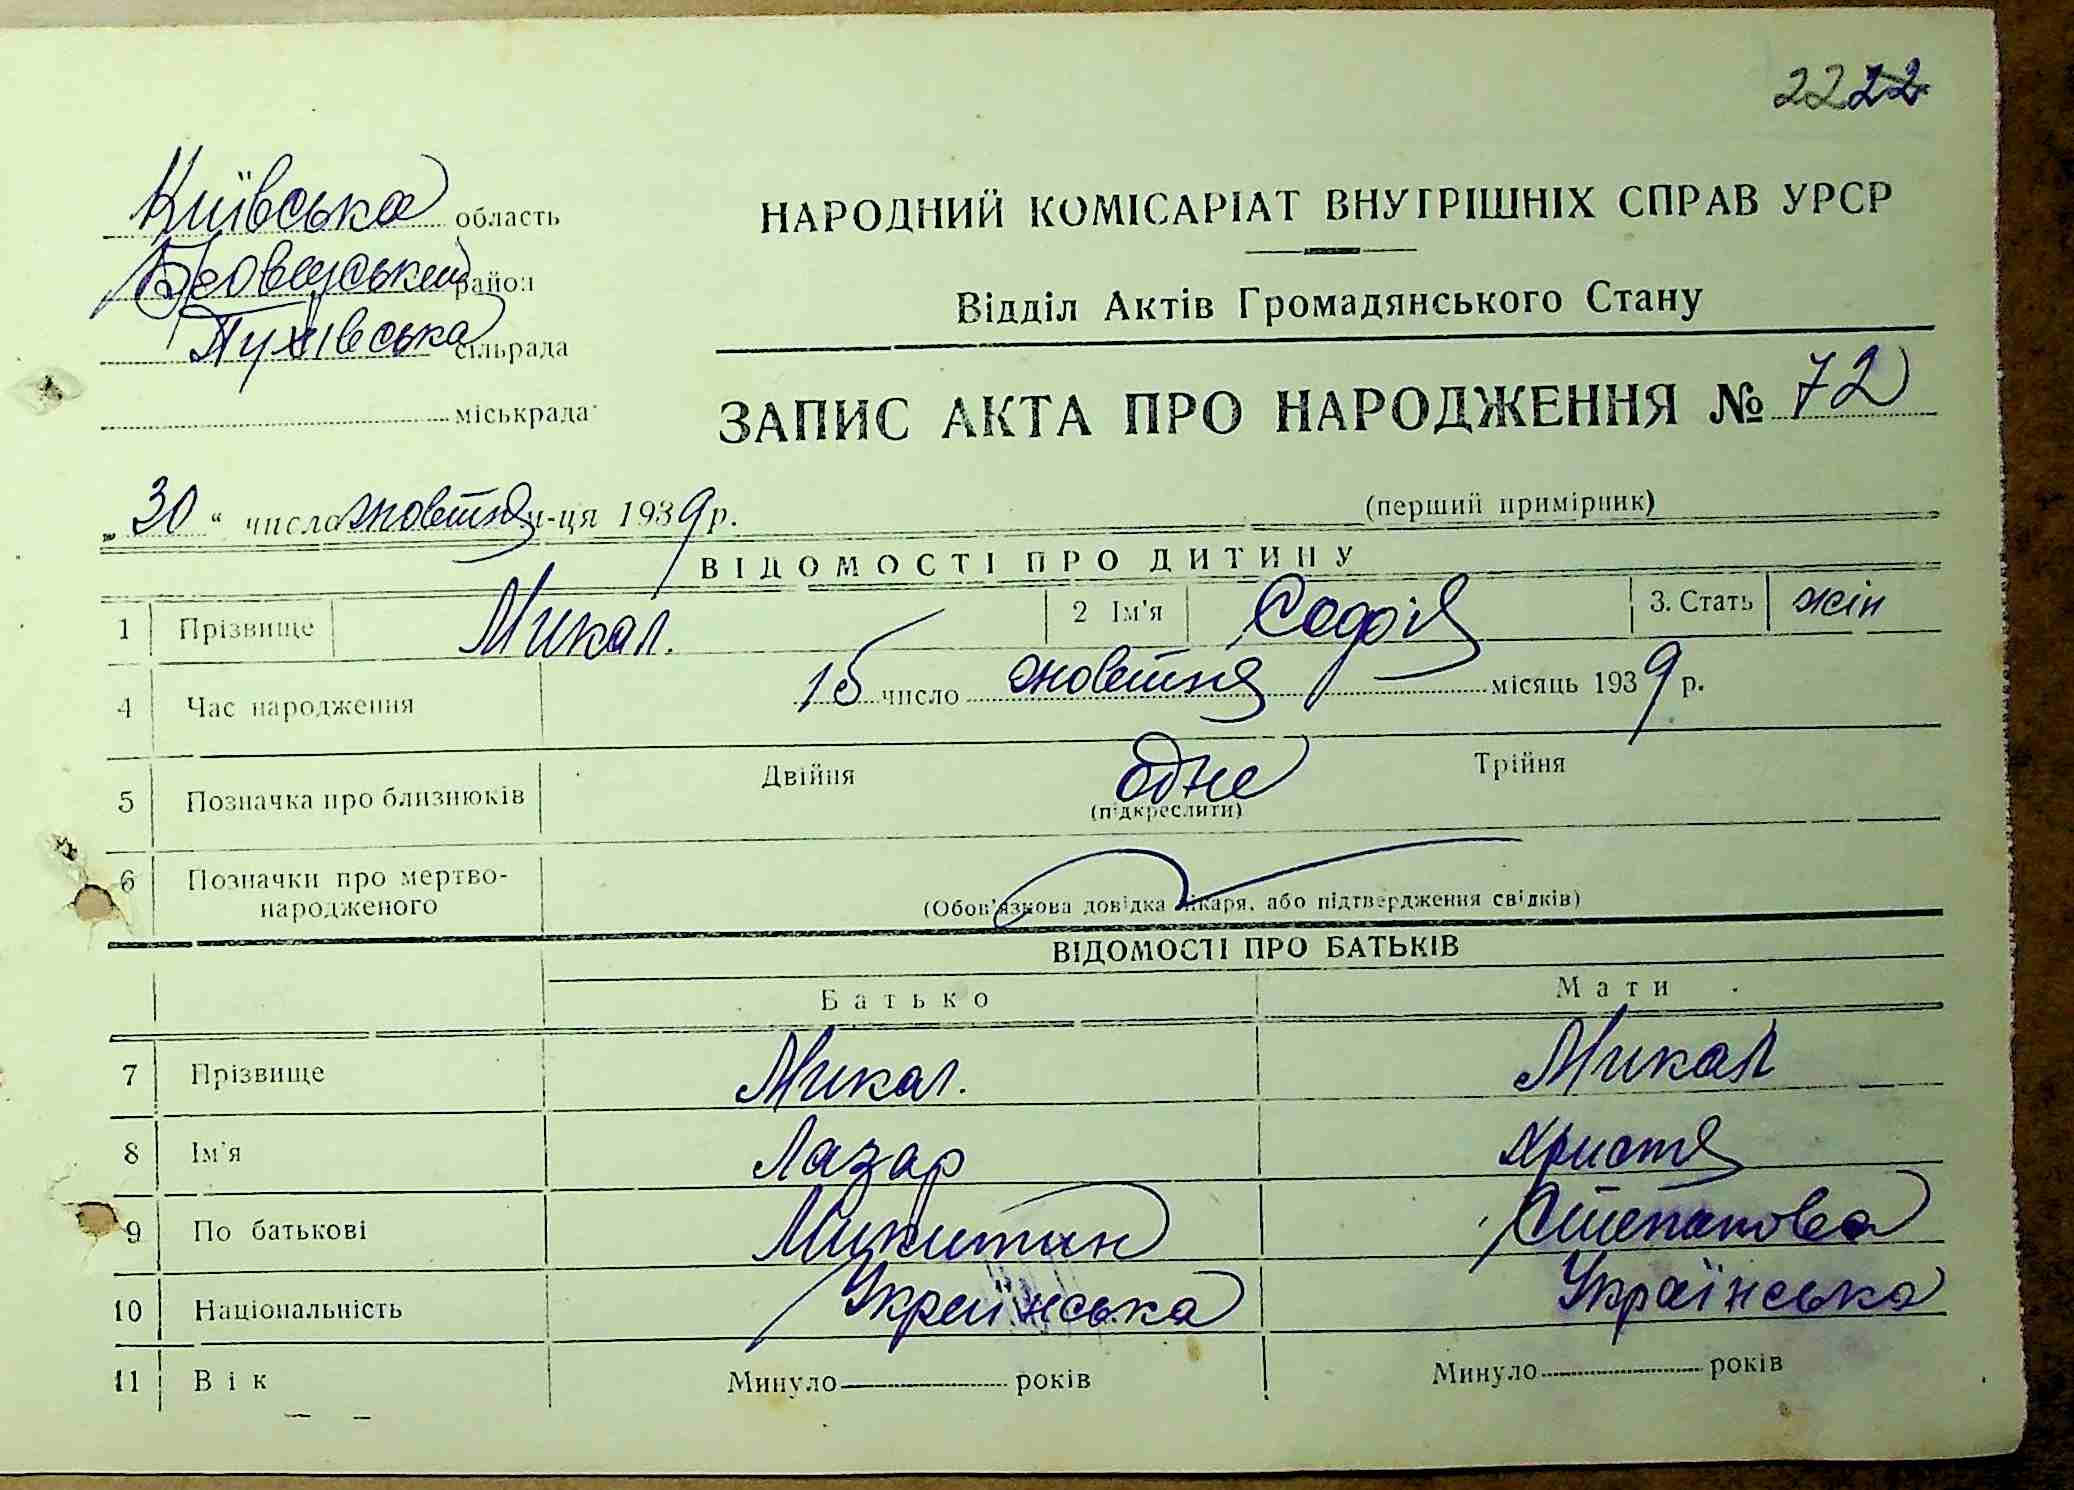 22 22
Київська область
Броварський район
Пухівська сільрада
міськрада
НАРОДНИЙ КОМІСАРІАТ ВНУТРІШНІХ СПРАВ УРСР
Відділ Актів Громадянського Стану
ЗАПИС АКТА ПРО НАРОДЖЕННЯ № 72
„30“ числа жовтня м-ця 1939 р.
(перший примірник)
ВІДОМОСТІ ПРО ДИТИНУ
1 Прізвище Микал. 2 Ім'я Софія 3. Стать жін
4 Час народження 15 число жовтня місяць 1939 р.
5 Позначка про близнюків Двійня одне Трійня
(підкреслити)
6 Позначки про мертво-
народженого
(Обов'язкова довідка лікаря, або підтвердження свідків)
ВІДОМОСТІ ПРО БАТЬКІВ
Батько Мати
7 Прізвище Микал. Микал
8 Ім'я Лазар Христя
9 По батькові Микитин Степанова
10 Національність Українська Українська
11 Вік Минуло років Минуло років